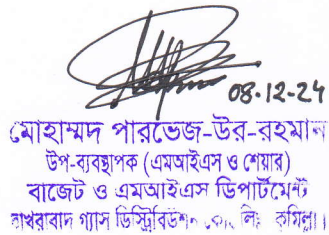 08-12-24
মোহাম্মদ পারভেজ-উর-রহমান
উপ-ব্যবস্থাপক (এমআইএস ও শেয়ার)
বাজেট ও এমআইএস ডিপার্টমেন্ট
বাখরাবাদ গ্যাস ডিস্ট্রিবিউশন কোং লিঃ কুমিল্লা।